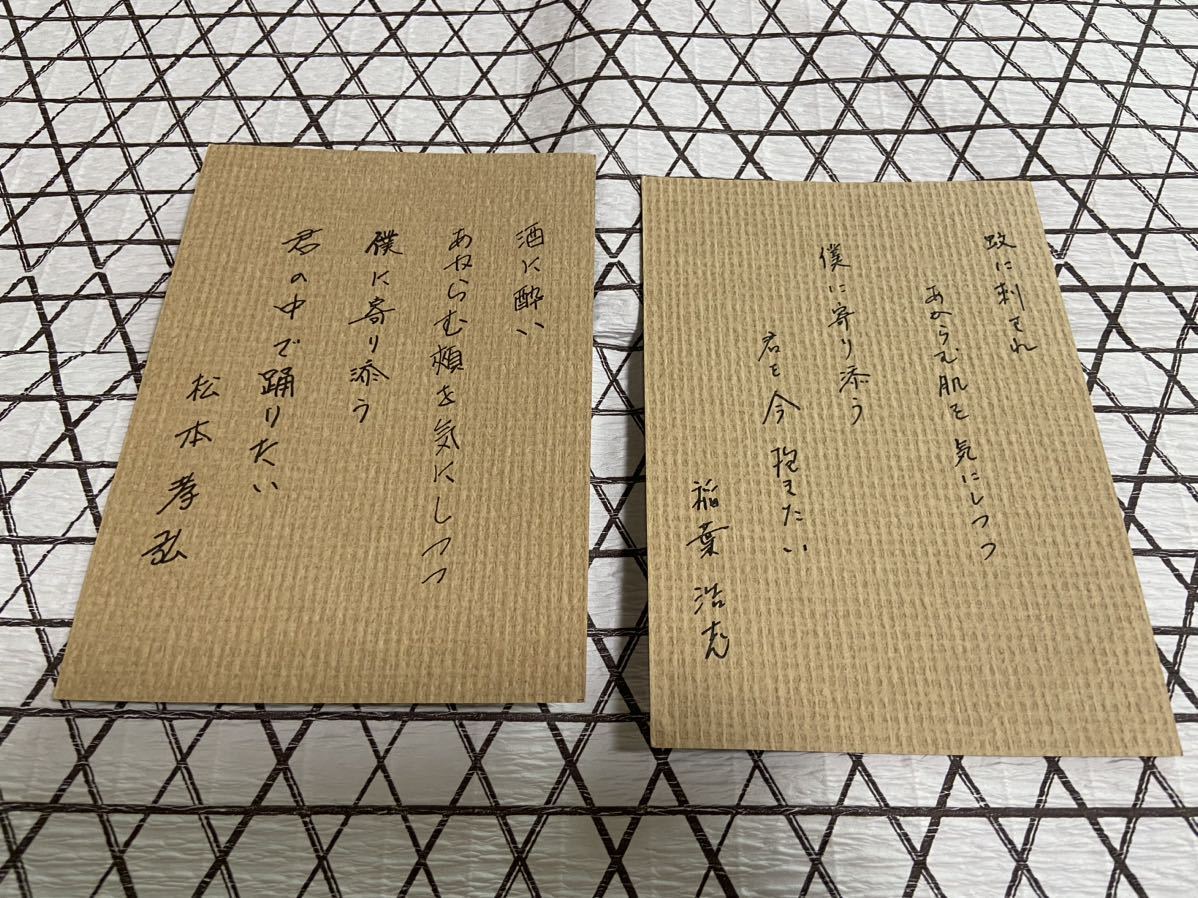 酒に酔い
あからむ頬を気にしつつ
僕に寄り添う
君の中で踊りたい
松本孝弘
蚊に刺され
あからむ肌を気にしつつ
僕に寄り添う
君を今抱きたい
稲葉浩志